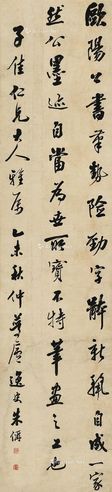 歐陽公書筆勢險勁字體新麗自成一家
然公墨迹自當為世所寶不特筆畫之工也
子佳仁兄大人雅屬 乙未秋仲 華廬逸史朱偁